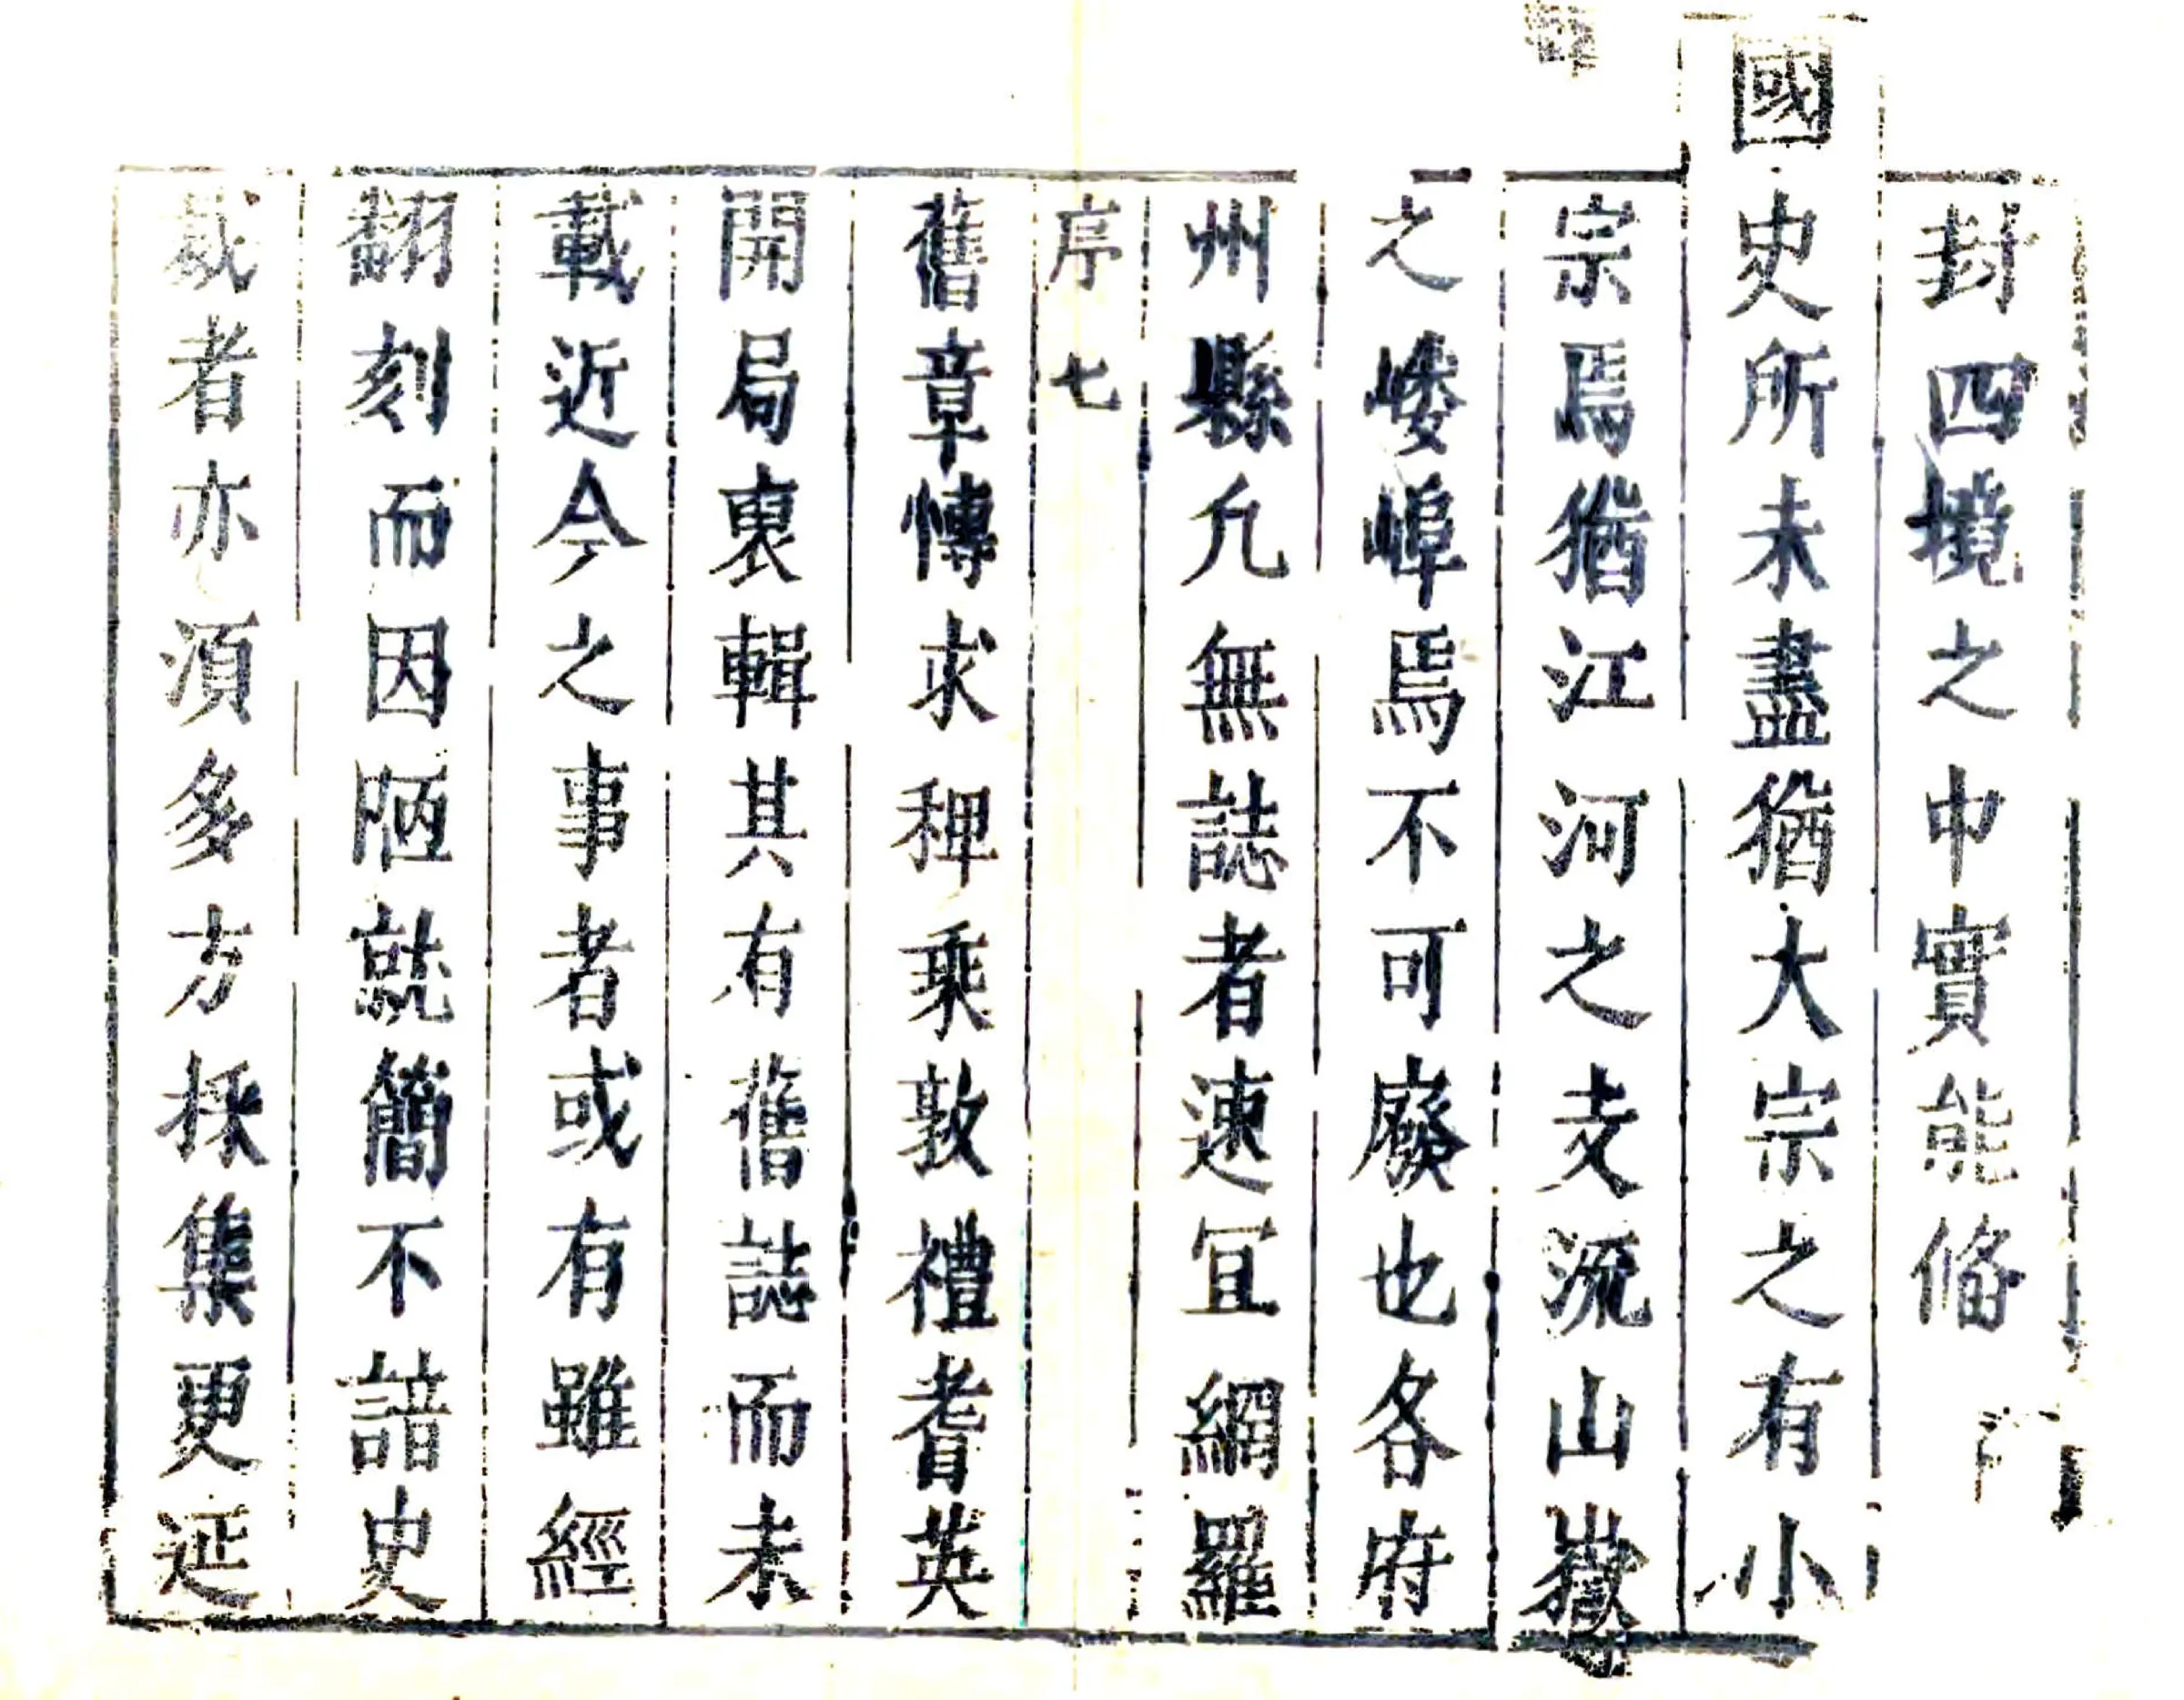 封四境之中實能俻
國史所未盡猶大宗之有小
宗焉猶江河之支流山嶽
之嵝㟂焉不可廢也各府
州縣凢無誌者速冝網羅
序七
舊章慱求稗乘敦禮耆英
開局裒輯其有舊誌而未
載近今之事者或有雖經
翻刻而因陋就簡不諳史
裁者亦湏多方採集更延